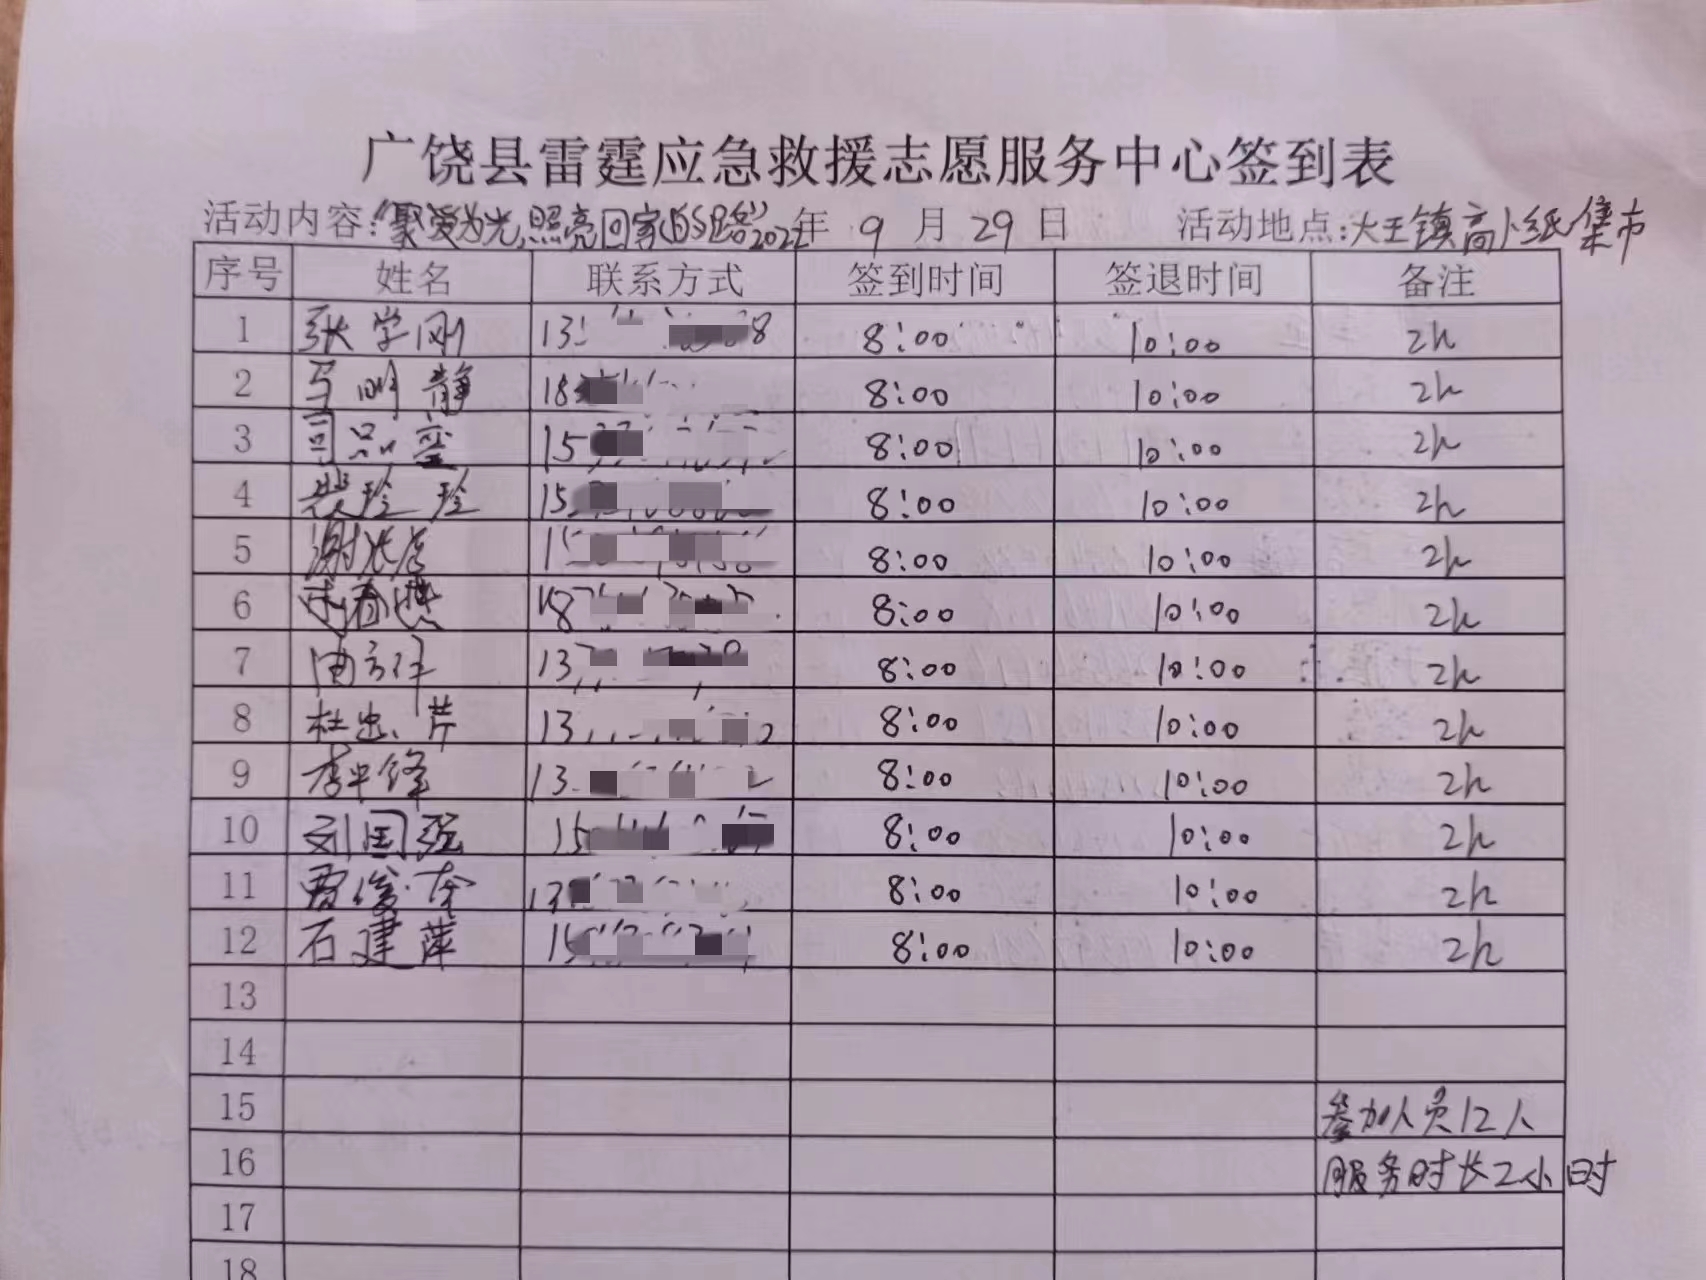 广饶县雷霆应急救援志愿服务中心签到表
活动内容:“聚爱为光,照亮回家的路”2022年 9 月 29 日 活动地点:大王镇高小纸集市
序号 姓名 联系方式 签到时间 签退时间 备注
1 张学刚 13 8 8:00 10:00 2h
2 马明静 18 8:00 10:00 2h
3 司品 15 8:00 10:00 2h
4 裴珍珍 15 8:00 10:00 2h
5 谢 8:00 10:00 2h
6 春燕 8:00 10:00 2h
7 13 8:00 10:00 2h
8 杜忠芹 13 8:00 10:00 2h
9 李 锋 13 8:00 10:00 2h
10 刘国强 15 8:00 10:00 2h
11 贾俊 13 8:00 10:00 2h
12 石建萍 15 8:00 10:00 2h
13
14
15 参加人员12人
16 服务时长2小时
17
18